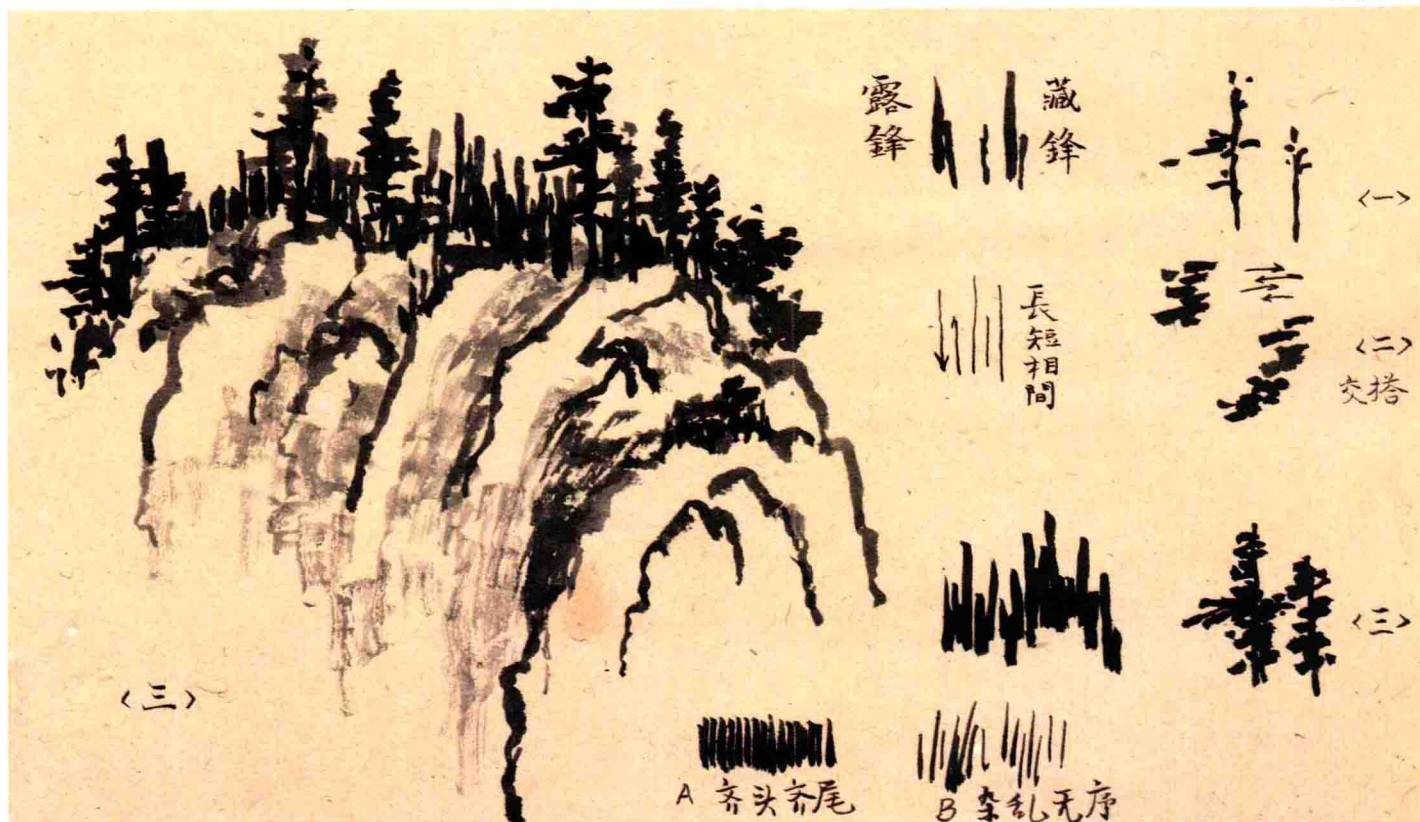 露鋒
藏鋒
<一>
長短相間
<二>
交搭
<三>
<三>
A 齐头齐尾
B 杂乱无序